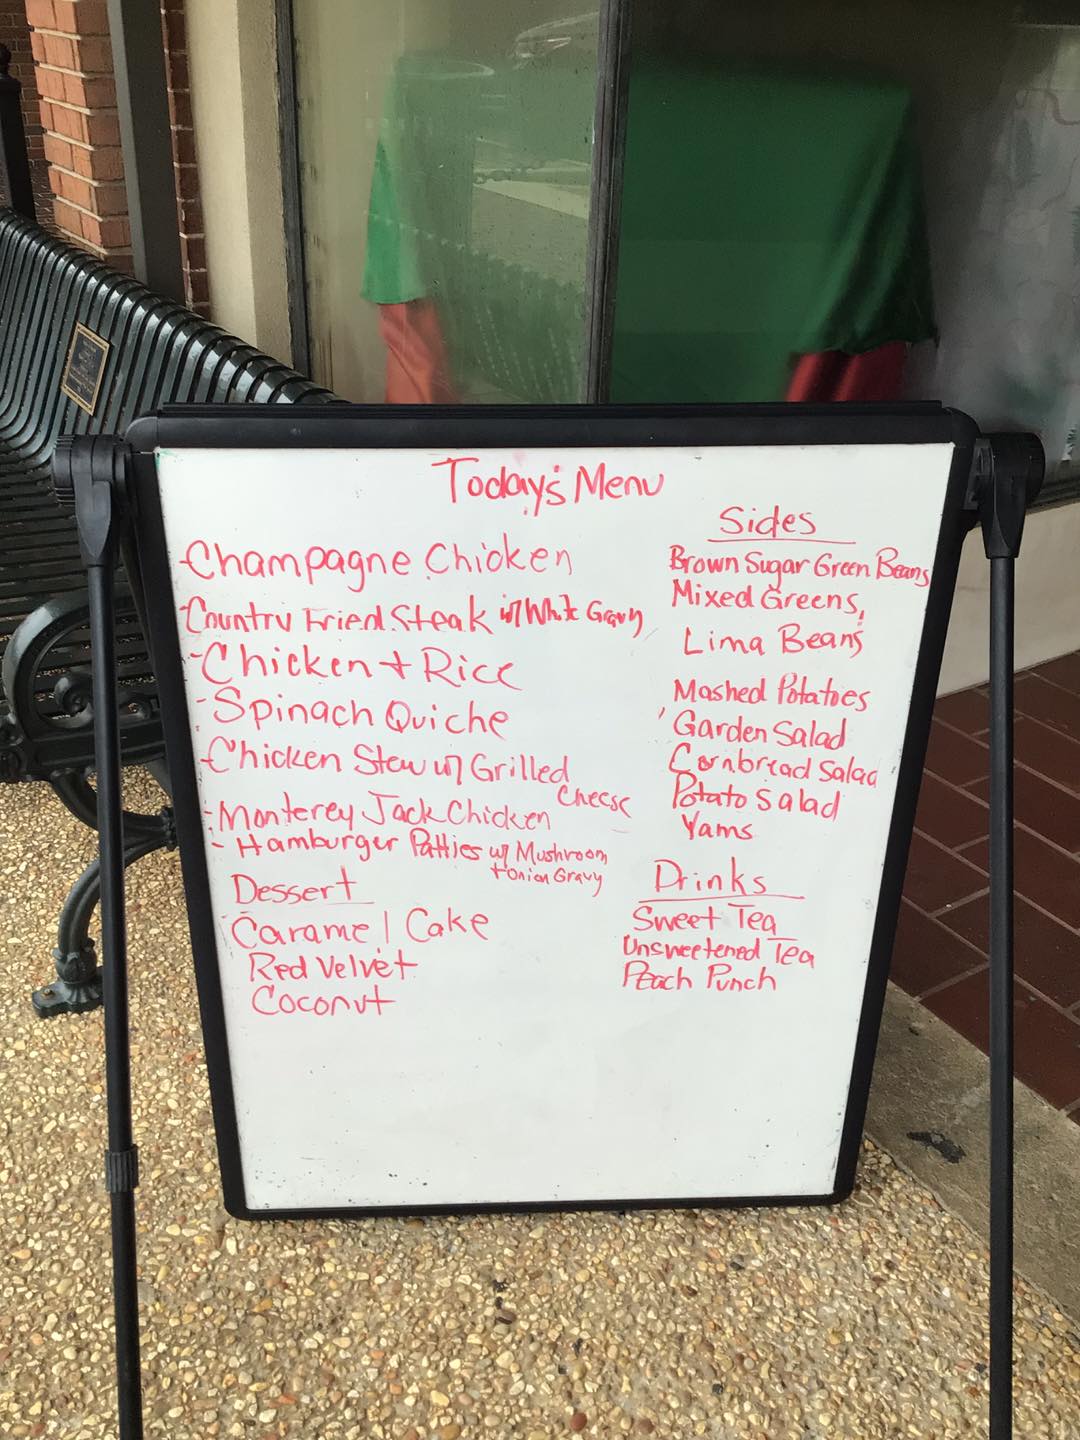 Today's Menu
-Champagne Chicken
-Country Fried Steak w/ White Gravy
-Chicken + Rice
-Spinach Quiche
-Chicken Stew w/ Grilled
Cheese
-Monterey Jack Chicken
-Hamburger Patties w/ Mushroom
+ Onion Gravy
Dessert
Caramel Cake
Red Velvet
Coconut
Sides
Brown Sugar Green Beans
Mixed Greens,
Lima Beans
Mashed Potatoes
Garden Salad
Cornbread Salad
Potato Salad
Yams
Drinks
Sweet Tea
Unsweetened Tea
Peach Punch